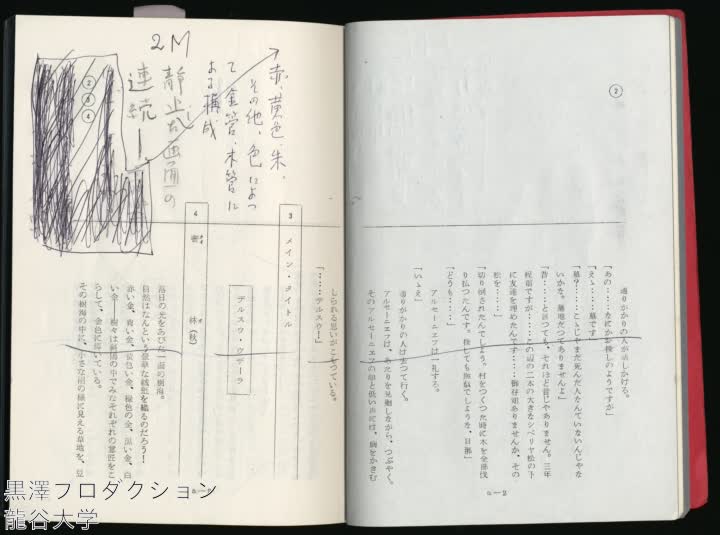 ②
通りがかりの人が話しかける。
「あの……なにかお探しのようですが」
「えゝ……墓です」
「墓？……こゝじゃまだ死んだ人なんていないんじゃないかな。墓地だってありませんよ」
「昔……と言っても、それほど昔じゃありません。三年程前ですが……この辺の二本の大きなシベリヤ松の下に友達を埋めたんです……御存知ありませんか、その松を……」
「切り倒されたんでしょう。村をつくつた時に木を全部伐り払つたんです。探しても無駄でしょうな、旦那」
「どうも……」
アルセーニエフは一礼する。
「いゝえ」
通りがかりの人は立つて行く。
アルセーニエフは、あたりを見廻しながら、つぶやく。
そのアルセーニエフの顔と低い声には、胸をかきむ
a—2
しられる思いがこもつている。
「……デルスウ！」
3
メイン・タイトル
デルスウ・ウザーラ
4
密林（秋）
落日の光をあびた一面の樹海。
自然はなんという豪華な絨毯を織るのだろう！
赤い金、青い金、黄色い金、緑色の金、黒い金、白い金——樹々は斜陽の中でみなそれぞれの意匠をこらして、金色に輝いている。
その樹海の中に、小さな沼の様に見える草地を、豆
赤、黄色、朱、
その他、色によつ
て金管、木管に
よる構成
2M
静止した画面の
連続ー
②
③
④
黒澤プロダクション
龍谷大学